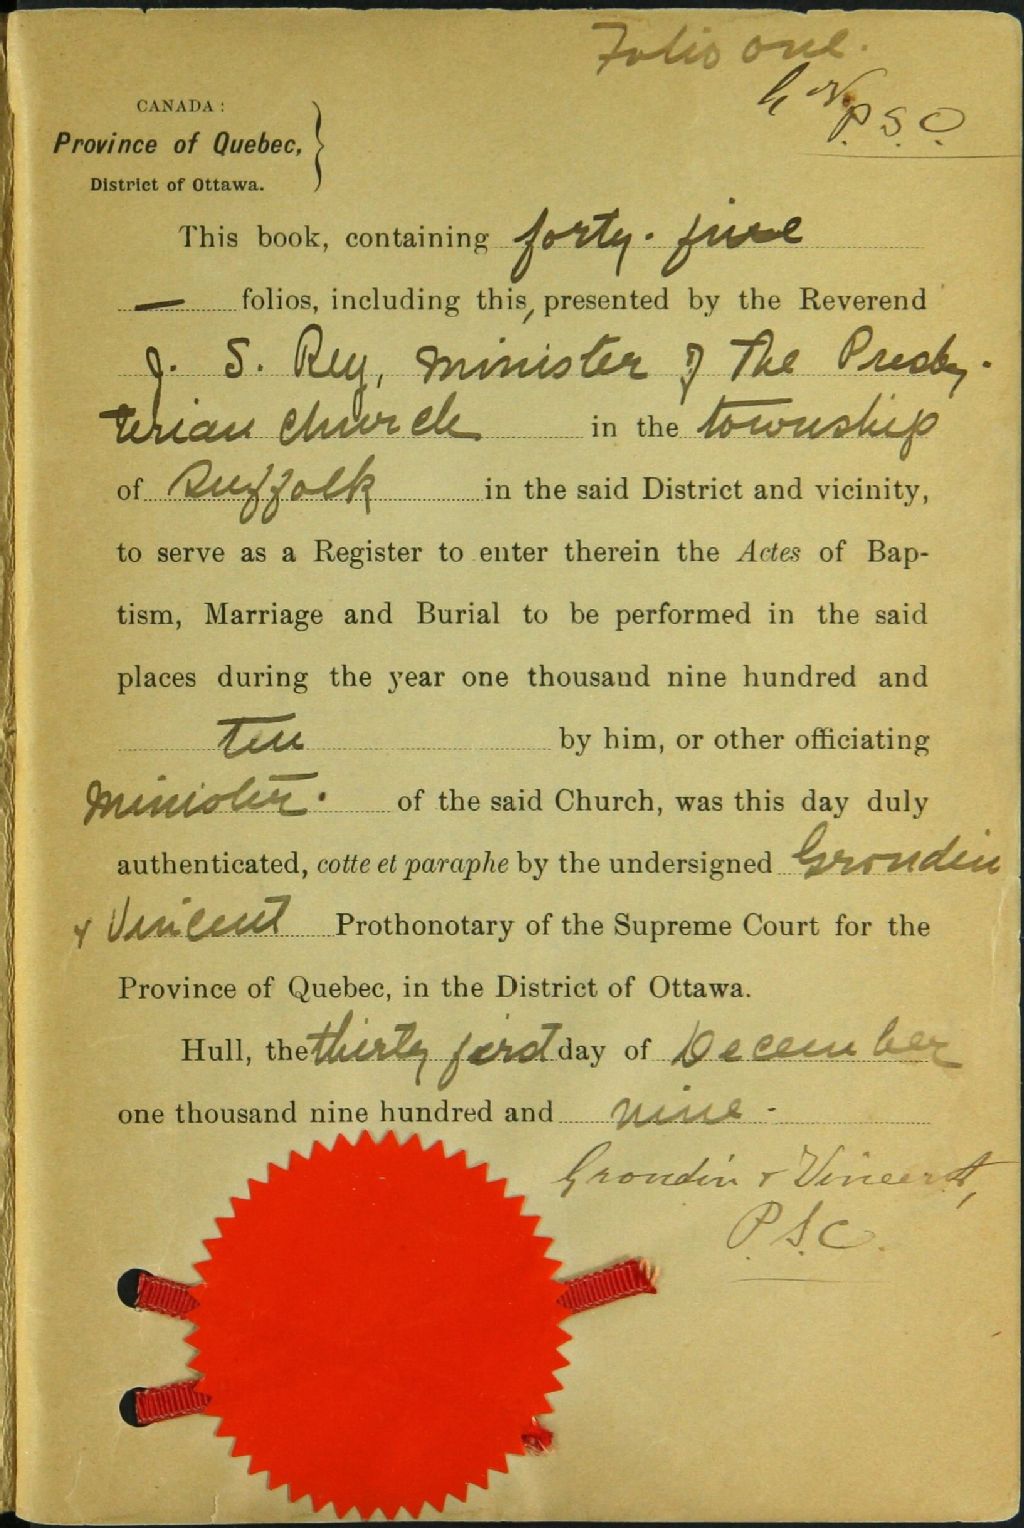 Folio one.
G V.
P. S. C.
CANADA :
Province of Quebec,
District of Ottawa.
This book, containing forty-five
— folios, including this, presented by the Reverend
J. S. Rey, minister of The Presby-
terian church in the township
of Suffolk in the said District and vicinity,
to serve as a Register to enter therein the Actes of Bap-
tism, Marriage and Burial to be performed in the said
places during the year one thousand nine hundred and
ten by him, or other officiating
minister. of the said Church, was this day duly
authenticated, cotte et paraphe by the undersigned Grondin
& Vincent Prothonotary of the Supreme Court for the
Province of Quebec, in the District of Ottawa.
Hull, the thirty first day of December
one thousand nine hundred and nine -
Grondin & Vincent,
P. S. C.